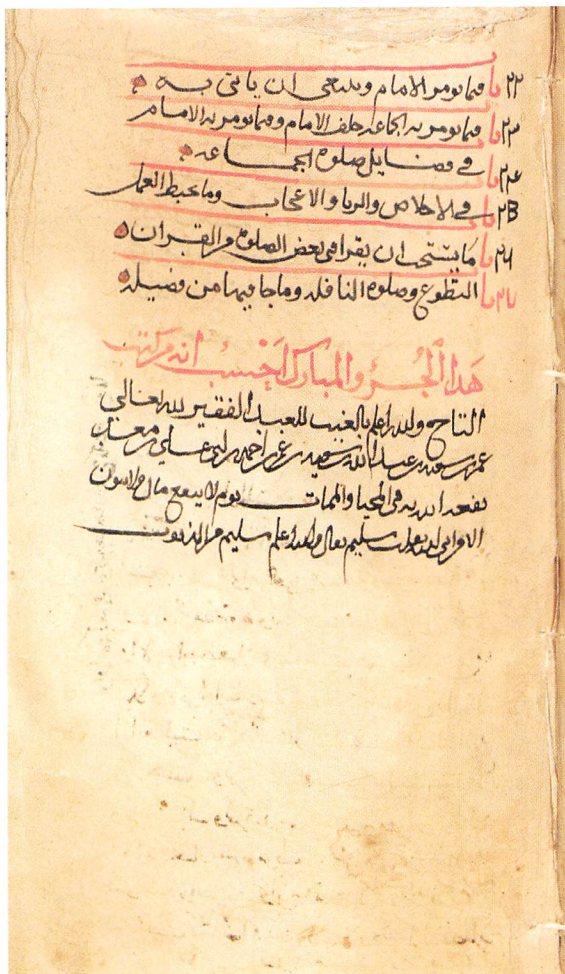 ٢٢ باب فيما يومر الامام وينبغي ان ياتي به
٢٣ باب فيما يومر به الجماعه خلف الامام وفيما يومر به الامام
٢٤ باب في فضايل صلوة الجماعه
٢٥ باب في الاخلاص والريا والاعجاب وما يحبط العمل
٢٦ باب ما يستحب ان يقرا في بعض الصلوة من القرآن
٢٧ باب التطوع وصلوة النافله وما جا فيها من فضيله
هذا الجزؤ المبارك احسب انه من كتب
التاج والله اعلم بالغيب للعبد الفقير لله تعالى
عمر بن سعيد بن عبد الله بن سعيد بن عمر بن احمد بن ابي علي بن معد
نفعه الله به في المحيا والممات يوم لا ينفع مال ولا بنون
الا من اتى الله بقلب سليم سليم من الذنوب